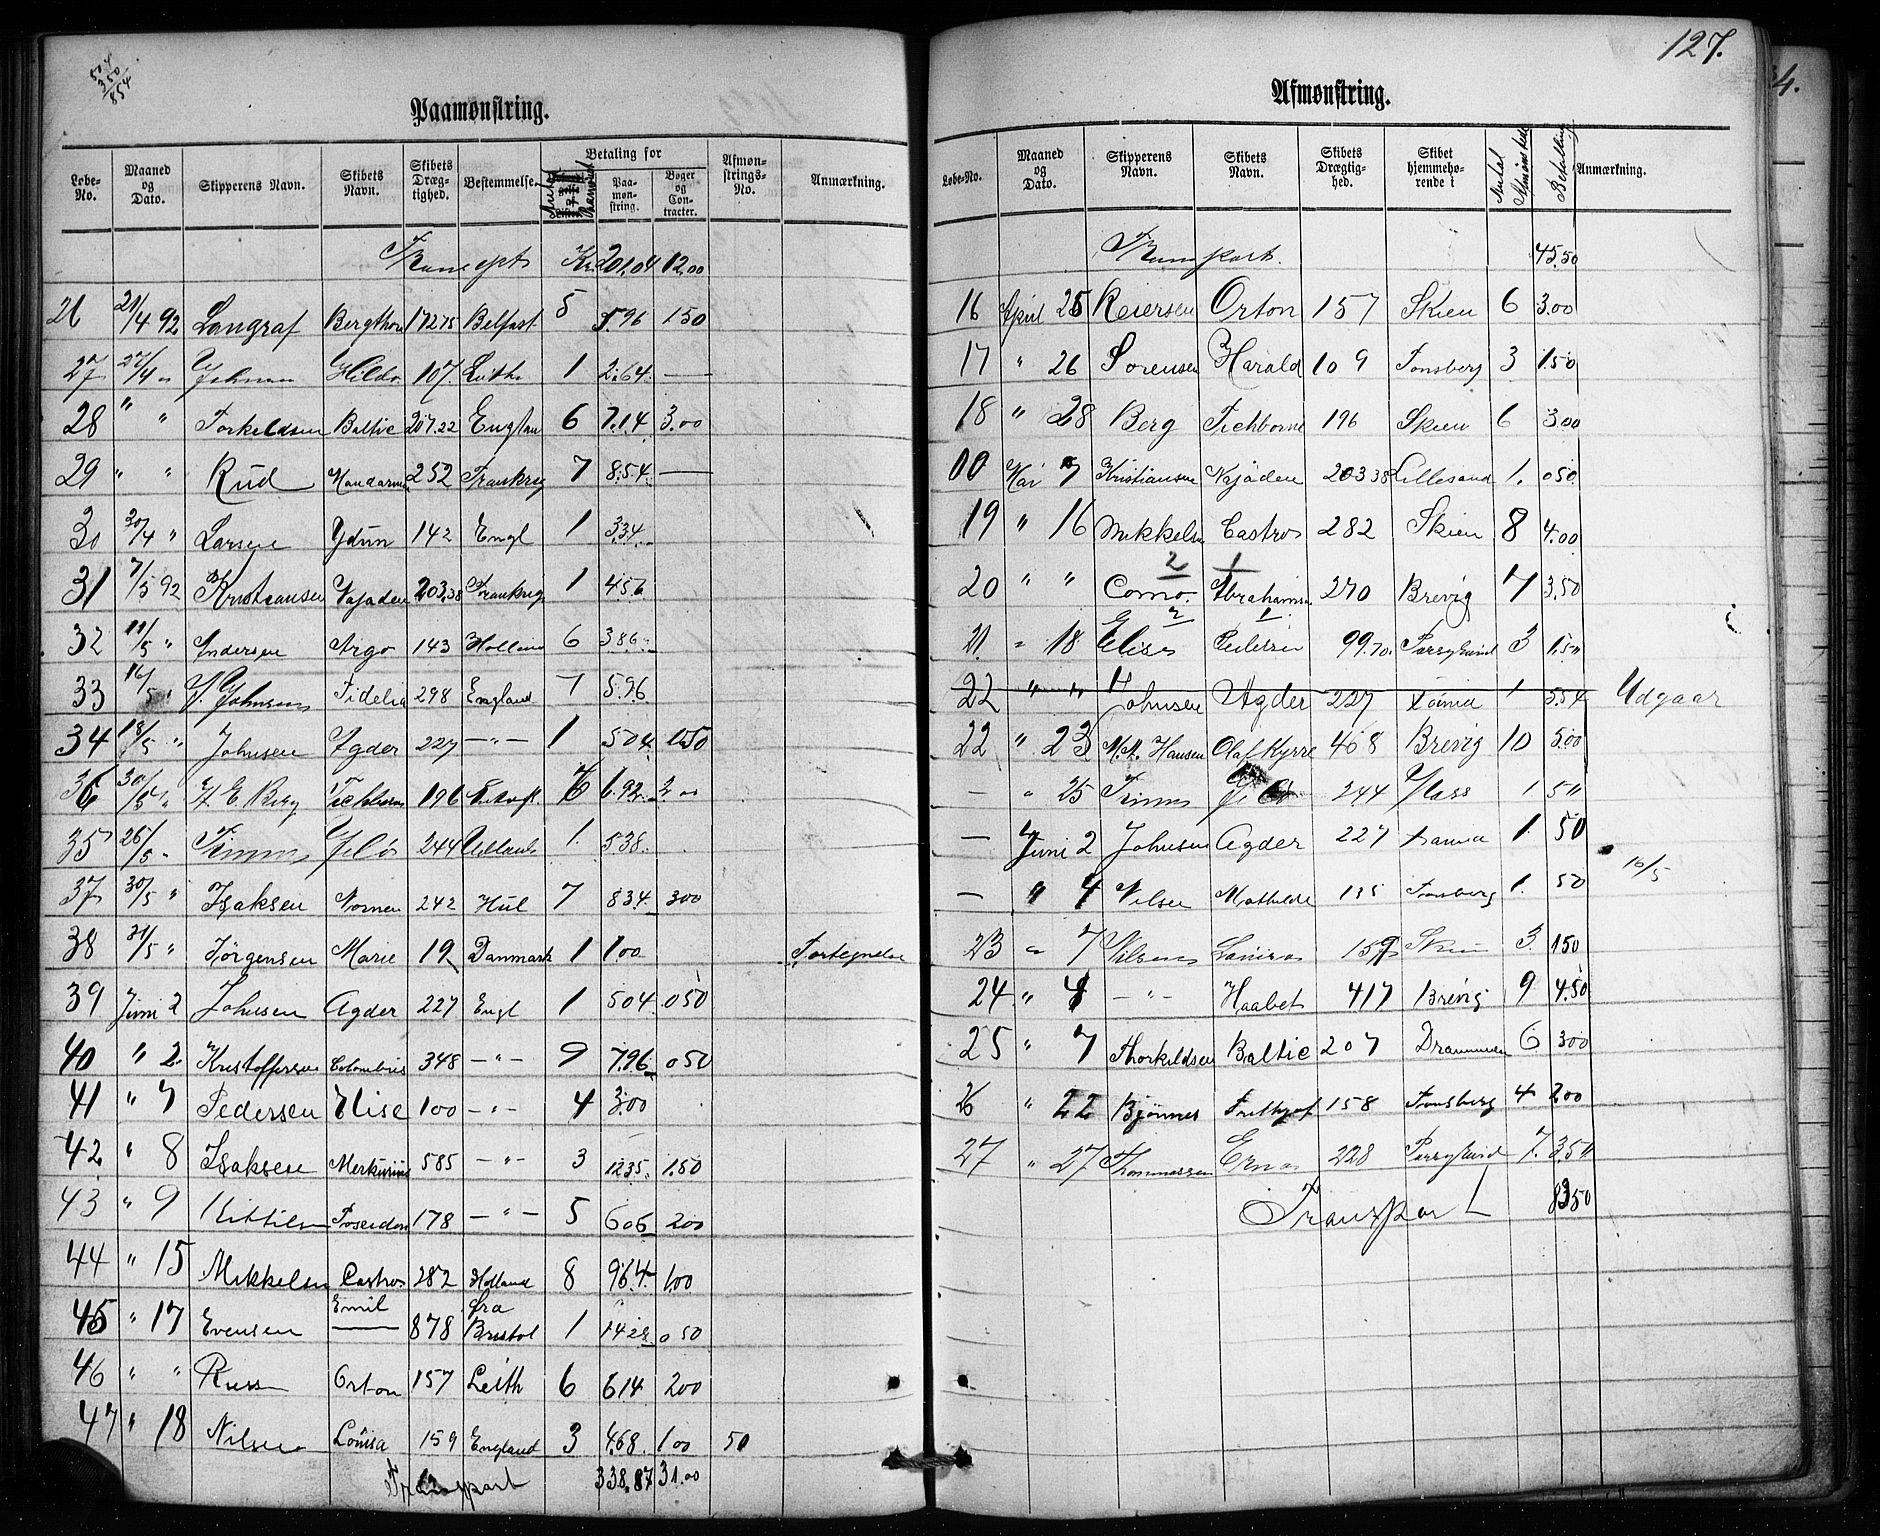 504
350
854
Paamønstring.
Løbe-No. Maaned og Dato. Skipperens Navn. Skibets Navn. Skibets Dræg-tighed. Bestemmelse. Betaling for Paa-møn-string. Bøger og Con-tracter. Afmøn-strings-No. Anmærkning.
Transport Kr. 201,04 12,00
26 21/4 92 Langraf 17275 Belfast 5 596 150
27 27/4 " Johnsen Hilda 107. Leith 1 2.64. —
28 " " Torkeldsen Baltic 207.22 Englan 6 7.14. 3.00
29 " " Rüd 252 Frankrig 7 8.54. —
30 30/4 " Larsen Ydun 142 Engl 1 3.34.
31 7/5 92 Kristiansen Najaden 203.38 Frankrig 1 4.56
32 11/5 " Andersen Argo 143 Holland 6 3.86.
33 16/5 " J. Johnsen Fidelia 298 England 7 5.96
34 18/5 " Johnsen Agder 227 —"— 1 504. 150
36 30/5 " H. E. Berg Tichborne 196 6 6.92. 2.00
35 25/5 " Timm 244 1. 538.
37 30/5 " Isaksen Nornen 242 Hül 7 834. 300
38 31/5 " Jørgensen Marie 19 Danmark 1 1.00 Fortegnelse
39 Juni 2 Johnsen Agder 227 Engl 1 504. 050
40 " 2. Kristoffersen Colombus 348 —"— 9 7.96 050
41 " 7 Pedersen Elise 100 —"— 4 3.00
42 " 8 Isaksen Merkurius 585 —"— 3 12.35. 1.50
43 " 9 Kittilsen Poseidon 178 —"— 5 606 200
44 " 15 Mikkelsen Castros 282 Holland 8 964. 1.00
45 " 17 Evensen Emil 878 fra Bristol 1 1428 050
46 " " Orton 157 Leith 6 614 200
47 " 18 Nilsen Louisa 159 England 3 468. 100 50
Transport 338.87 31.00
127.
4.
Afmønstring.
Løbe-No. Maaned og Dato. Skipperens Navn. Skibets Navn. Skibets Drægtig-hed. Skibet hjemmehø-rende i Antal Betaling Anmærkning.
Transport. 45.50
16 April 25 Reiersen Orton 157 Skien 6 3.00
17 " 26 Sorensen Harald 109 Tonsberg 3 1.50
18 " 28 Berg Tichborne 196 Skien 6 3.00
00 Mai 7 Kristiansen Najaden 20338 Lillesand 1. 050.
19 " 16 Mikkelsen Castros 282 Skien 8 4.00
2 1
20 " " Como. Abrahamsen 270 Brevig 7 3.50
2 1
21. " 18 Elise Pedersen 99.70. 3 1.50
22 " " Johnsen Agder 227 1 5.54 Udgaar
22 " 23 M. M. Hansen Olaf Kyrre 468 Brevig 10 5.00
— " 25 Timm 244 Moss 1 50
— Juni 2 Johnsen Agder 227 1. 50
— " 4 Nilsen Mathilde Tonsberg 1. 50 10/5
23 " 7 Nilsen Louisa 159 Skien 3. 150
24 " 4 —"— Haabet 417 Brevig 9 4.50
25 " 7 Thorkildsen Baltic 207 Drammen 6 300
26 " 22 Bjønnes Frithjof 158 Tonsberg 4 200
27 " 27 Thommassen Erna 228 7. 3.50
Transport 8350